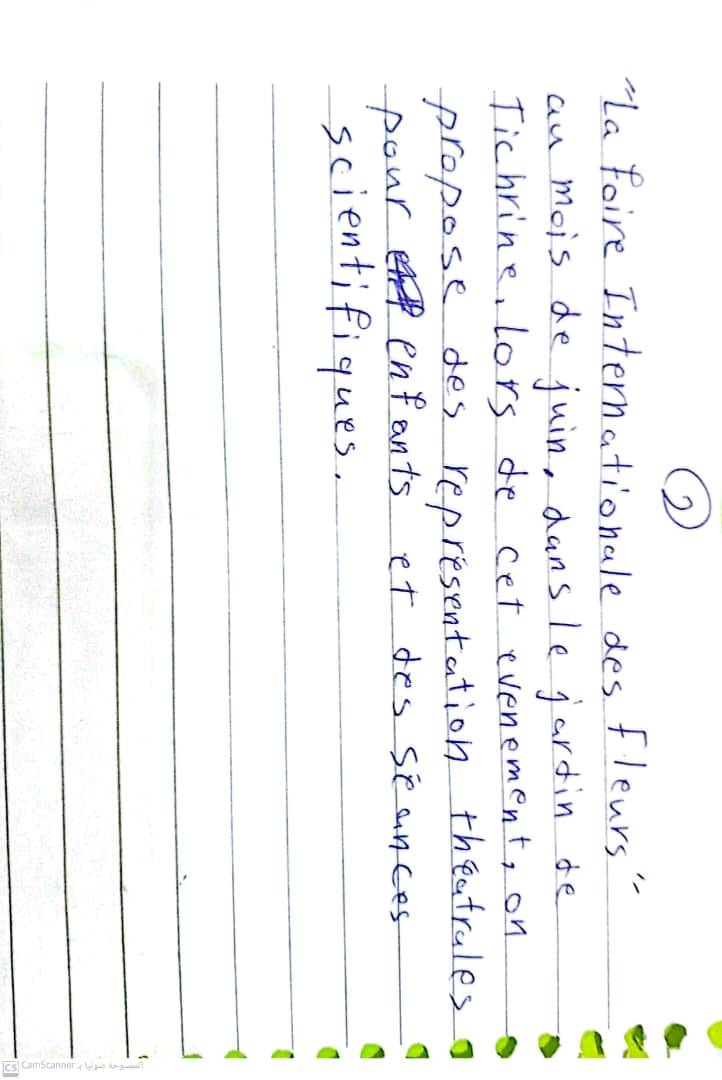 2
"La foire Internationale des fleurs"
au mois de juin, dans le jardin de
Tichrine, lors de cet evenement, on
propose des représentation théatrales
pour enfants et des séances
scientifiques.
CS CamScanner الممسوحة ضوئيا بـ